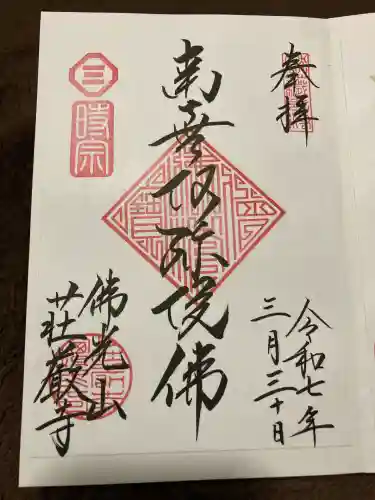 奉拝
令和七年
三月三十日
南無阿弥陀佛
佛光山
荘厳寺
三
時宗